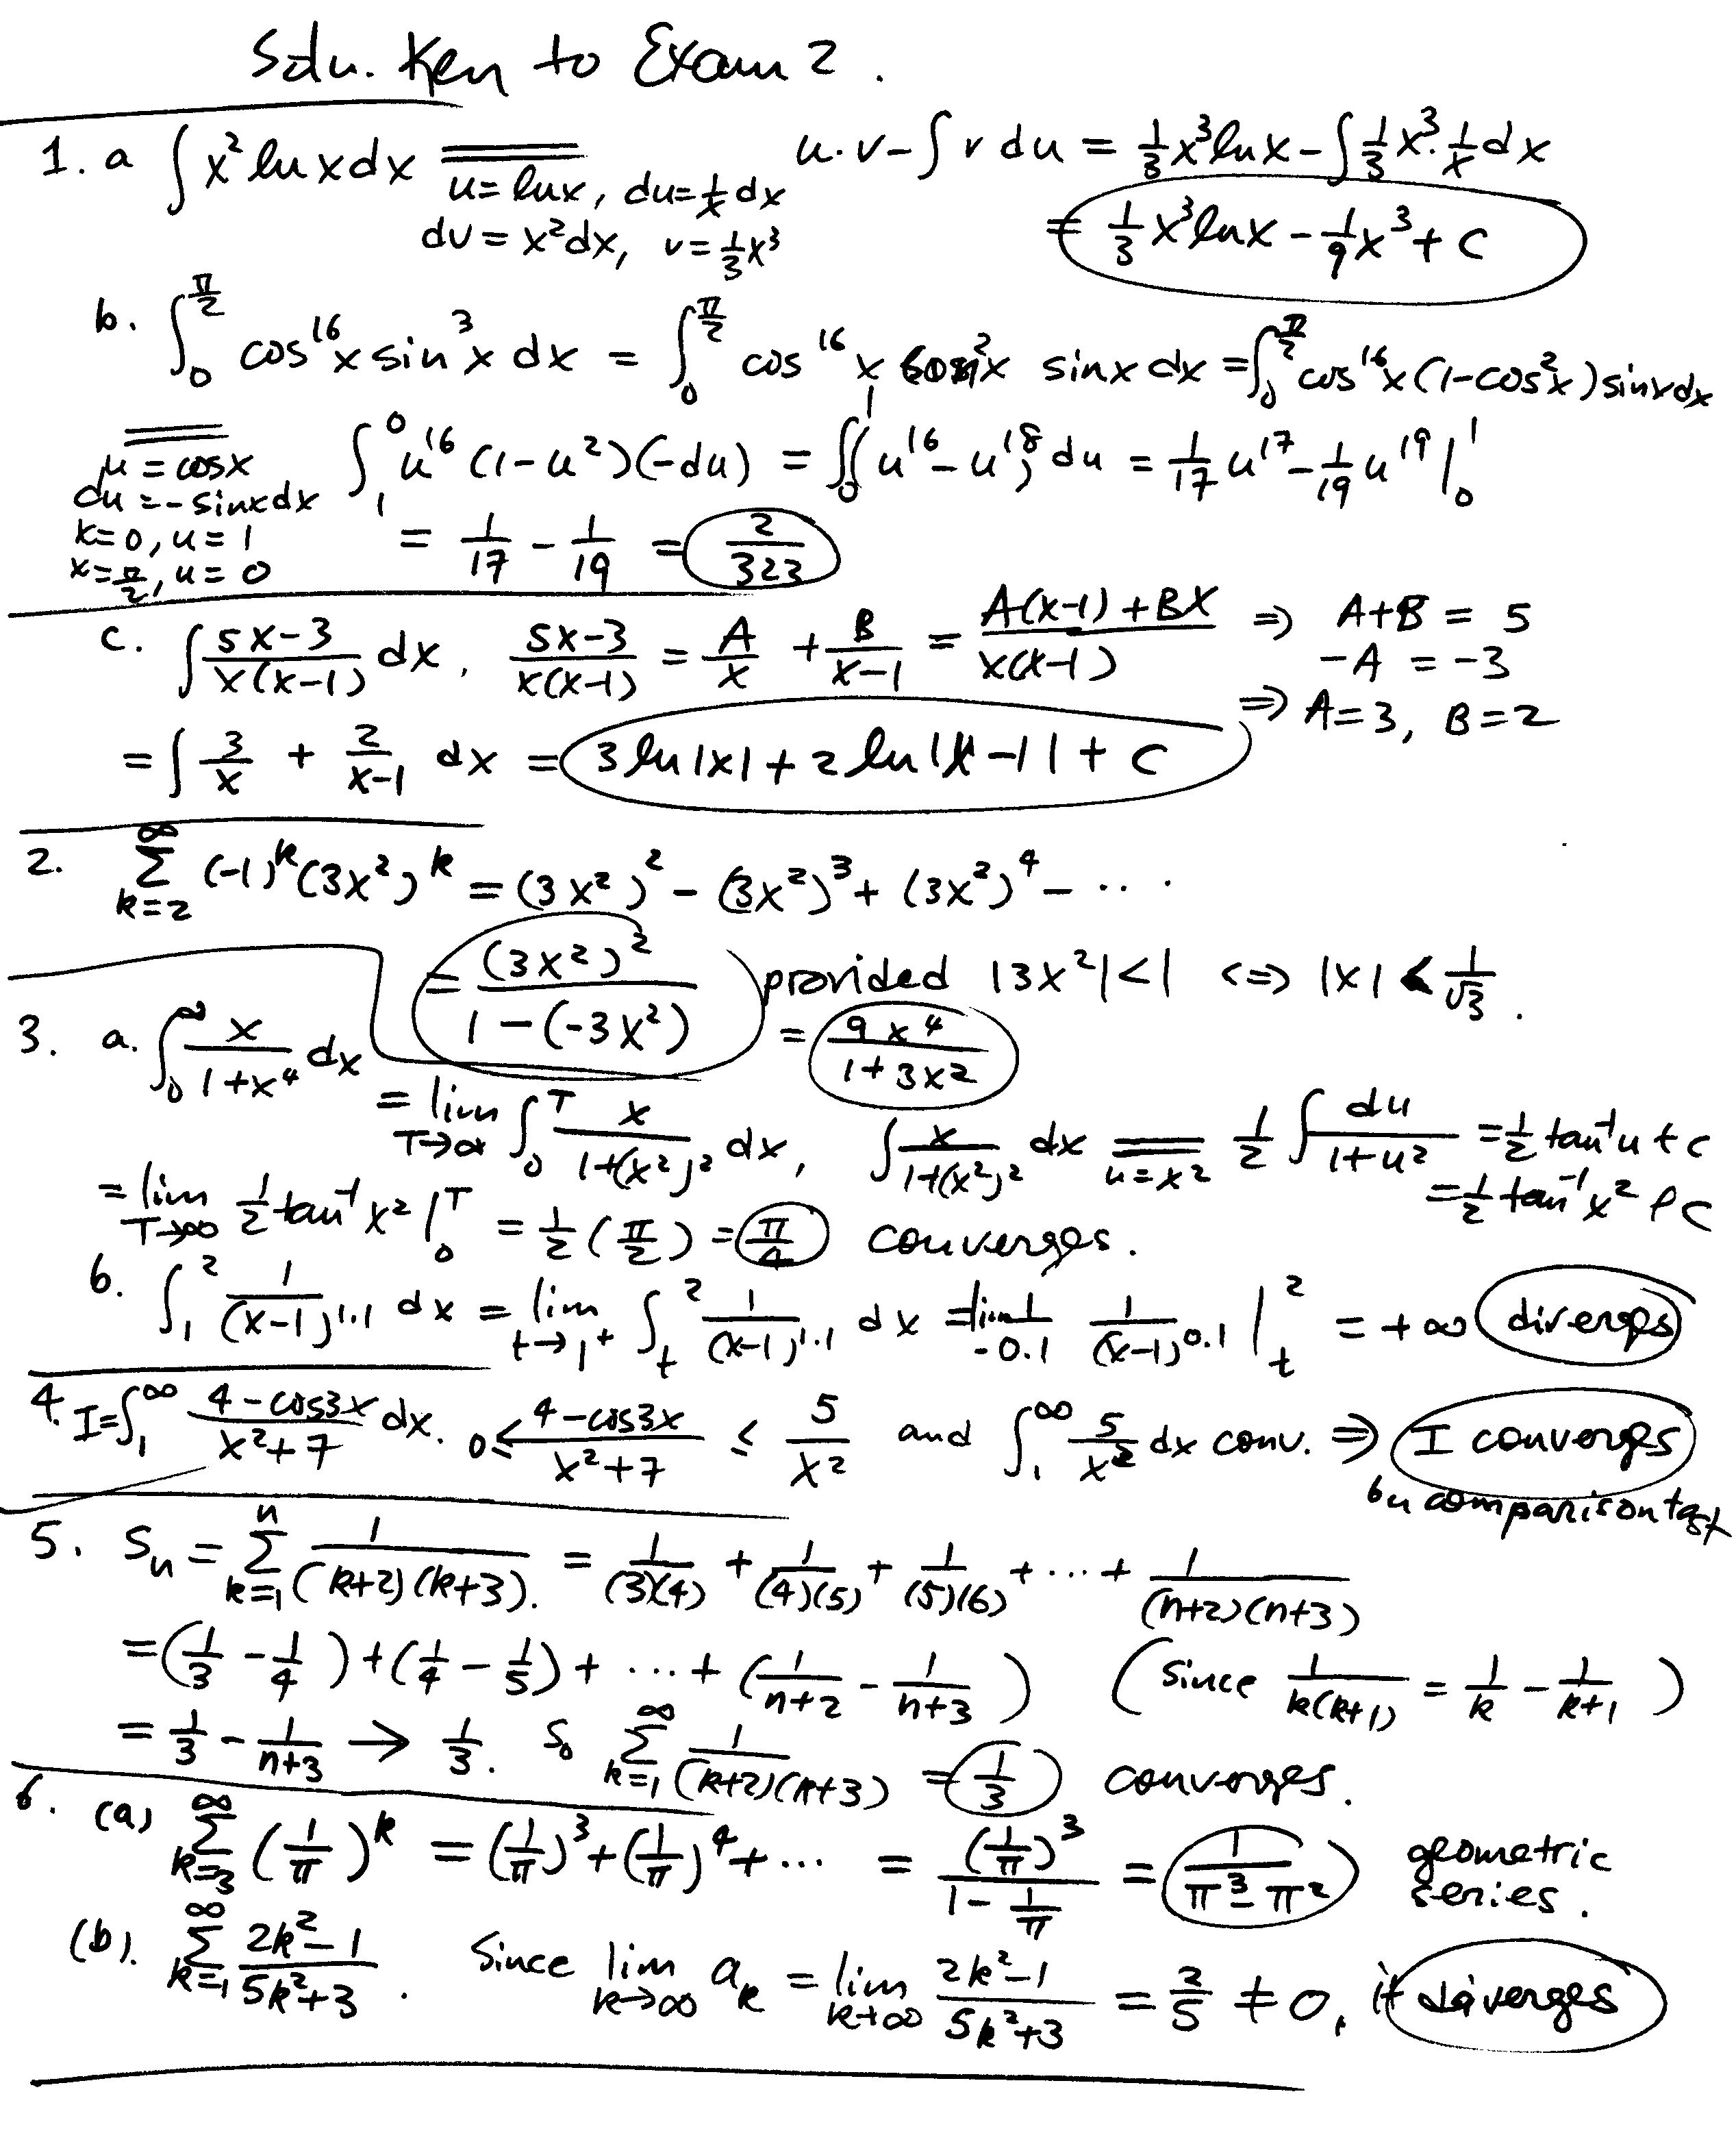 Soln. Key to Exam 2.
1. a ∫ x² ln x dx ══ u·v − ∫ v du = 1/3 x³ ln x − ∫ 1/3 x³ · 1/x dx
u = ln x, du = 1/x dx
dv = x² dx, v = 1/3 x³
= 1/3 x³ ln x − 1/9 x³ + C
b. ∫₀^(π/2) cos¹⁶ x sin³ x dx = ∫₀^(π/2) cos¹⁶ x sin² x sin x dx = ∫₀^(π/2) cos¹⁶ x (1 − cos² x) sin x dx
══ ∫₁⁰ u¹⁶ (1 − u²)(−du) = ∫₀¹ (u¹⁶ − u¹⁸) du = 1/17 u¹⁷ − 1/19 u¹⁹ |₀¹
u = cos x
du = − sin x dx
x = 0, u = 1
x = π/2, u = 0
= 1/17 − 1/19 = 2/323
c. ∫ (5x−3)/(x(x−1)) dx, (5x−3)/(x(x−1)) = A/x + B/(x−1) = (A(x−1) + Bx)/(x(x−1)) ⇒ A+B = 5
−A = −3
⇒ A = 3, B = 2
= ∫ 3/x + 2/(x−1) dx = 3 ln|x| + 2 ln|x−1| + C
2. ∑_(k=2)^∞ (−1)^k (3x²)^k = (3x²)² − (3x²)³ + (3x²)⁴ − ···
= (3x²)²/(1 − (−3x²)) provided |3x²| < 1 <=> |x| < 1/√3.
= 9x⁴/(1+3x²)
3. a. ∫₀^∞ x/(1+x⁴) dx
= lim_(T→∞) ∫₀^T x/(1+(x²)²) dx, ∫ x/(1+(x²)²) dx ══ (u = x²) 1/2 ∫ du/(1+u²) = 1/2 tan⁻¹ u + C
= 1/2 tan⁻¹ x² + C
= lim_(T→∞) 1/2 tan⁻¹ x² |₀^T = 1/2 (π/2) = π/4 converges.
b. ∫₁² 1/(x−1)^1.1 dx = lim_(t→1⁺) ∫_t² 1/(x−1)^1.1 dx = lim 1/−0.1 1/(x−1)^0.1 |_t² = +∞ diverges
4. I = ∫₁^∞ (4−cos3x)/(x²+7) dx. 0 ≤ (4−cos3x)/(x²+7) ≤ 5/x² and ∫₁^∞ 5/x² dx conv. ⇒ I converges
by comparison test
5. Sₙ = ∑_(k=1)^n 1/((k+2)(k+3)). = 1/((3)(4)) + 1/((4)(5)) + 1/((5)(6)) + ··· + 1/((n+2)(n+3))
= (1/3 − 1/4) + (1/4 − 1/5) + ··· + (1/(n+2) − 1/(n+3)) (Since 1/(k(k+1)) = 1/k − 1/(k+1))
= 1/3 − 1/(n+3) → 1/3. So ∑_(k=1)^∞ 1/((k+2)(k+3)) = 1/3 converges.
6. (a) ∑_(k=3)^∞ (1/π)^k = (1/π)³ + (1/π)⁴ + ··· = (1/π)³/(1 − 1/π) = 1/(π³ − π²) geometric
series.
(b). ∑_(k=1)^∞ (2k²−1)/(5k²+3). Since lim_(k→∞) a_k = lim_(k→∞) (2k²−1)/(5k²+3) = 2/5 ≠ 0, it diverges